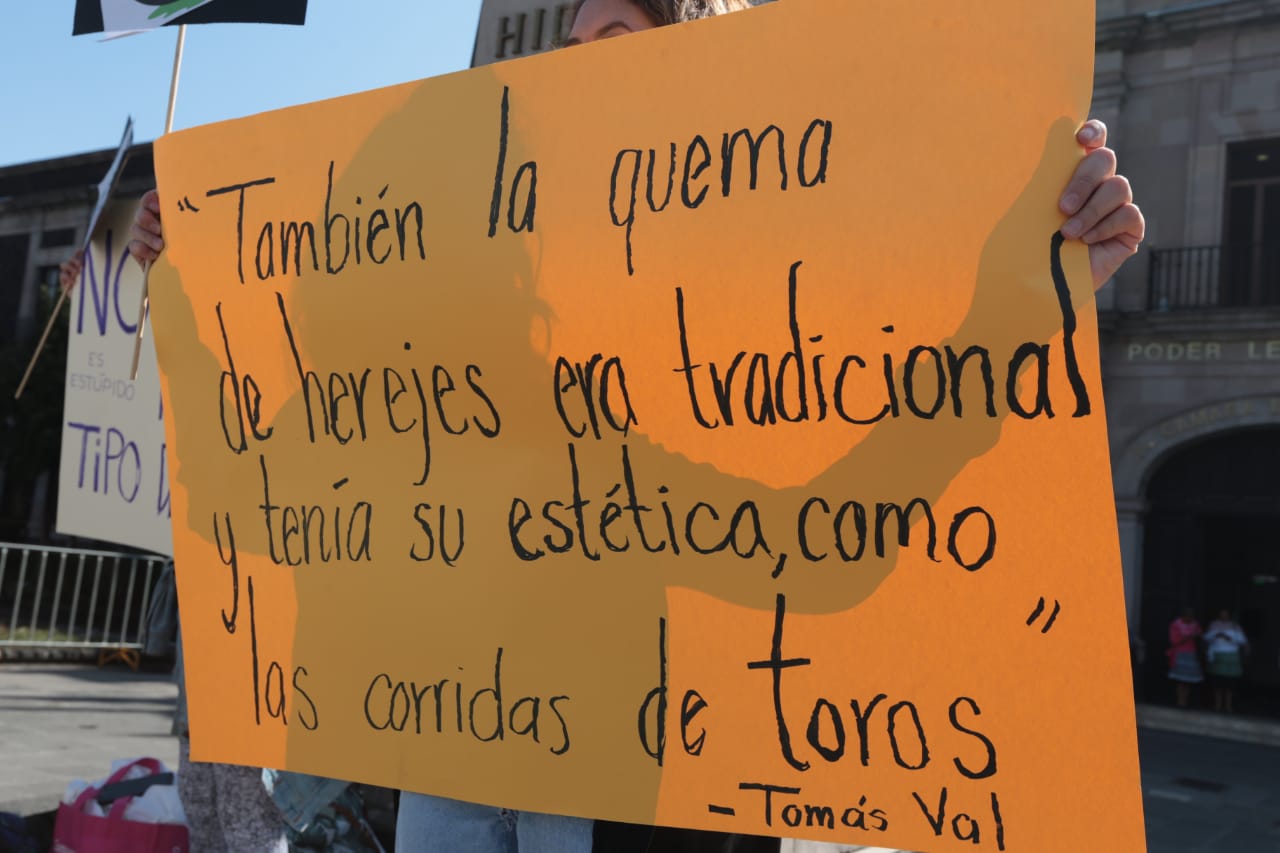 HI
"También la quema
de herejes era tradicional
y tenía su estética, como
las corridas de toros"
- Tomás Val
NO
ES
ESTÚPIDO
TIPO
PODER LE